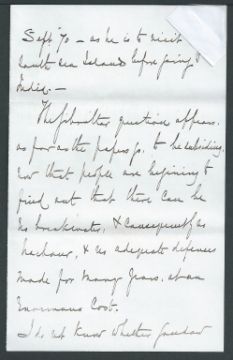 Sept 70 – as he is to visit
South Sea Islands before going to
India. –
The Gibraltar question appears,
as far as the papers go, to be subsiding,
now that people are beginning to
find out that there can be
no breakwater, & consequently no
harbour, & no adequate defences
made for many years, at an
enormous cost.
I do not know whether